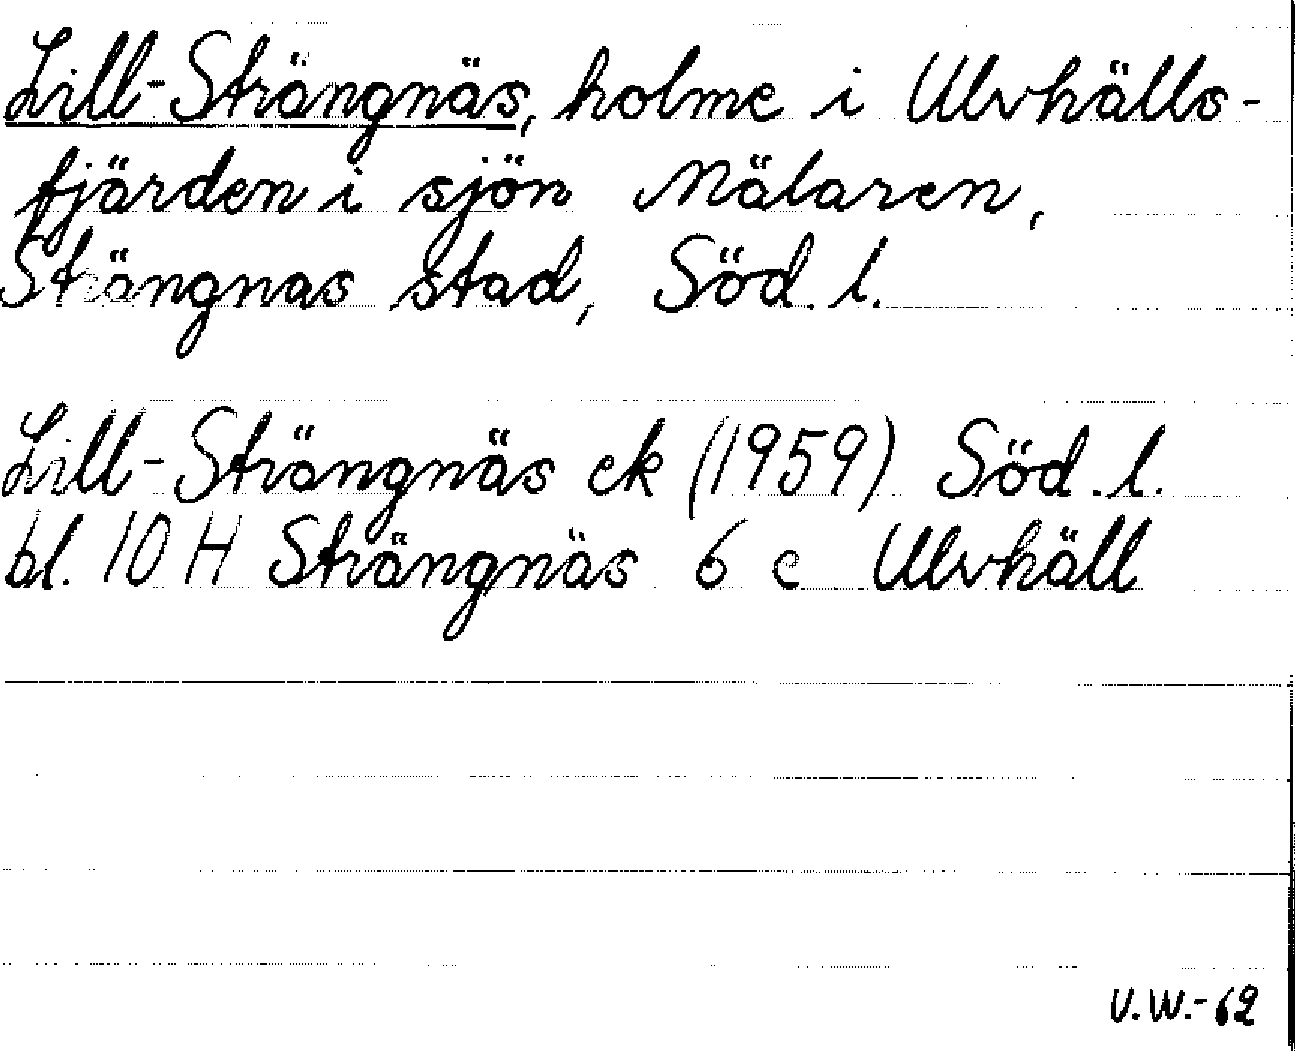 Lill-Strängnäs, holme i Ulvhälls-
fjärden i sjön Mälaren,
Strängnas stad, Söd. l.
Lill-Strängnäs ek (1959) Söd. l.
bl. 10 H Strängnäs 6 c Ulvhäll
V.W.-62